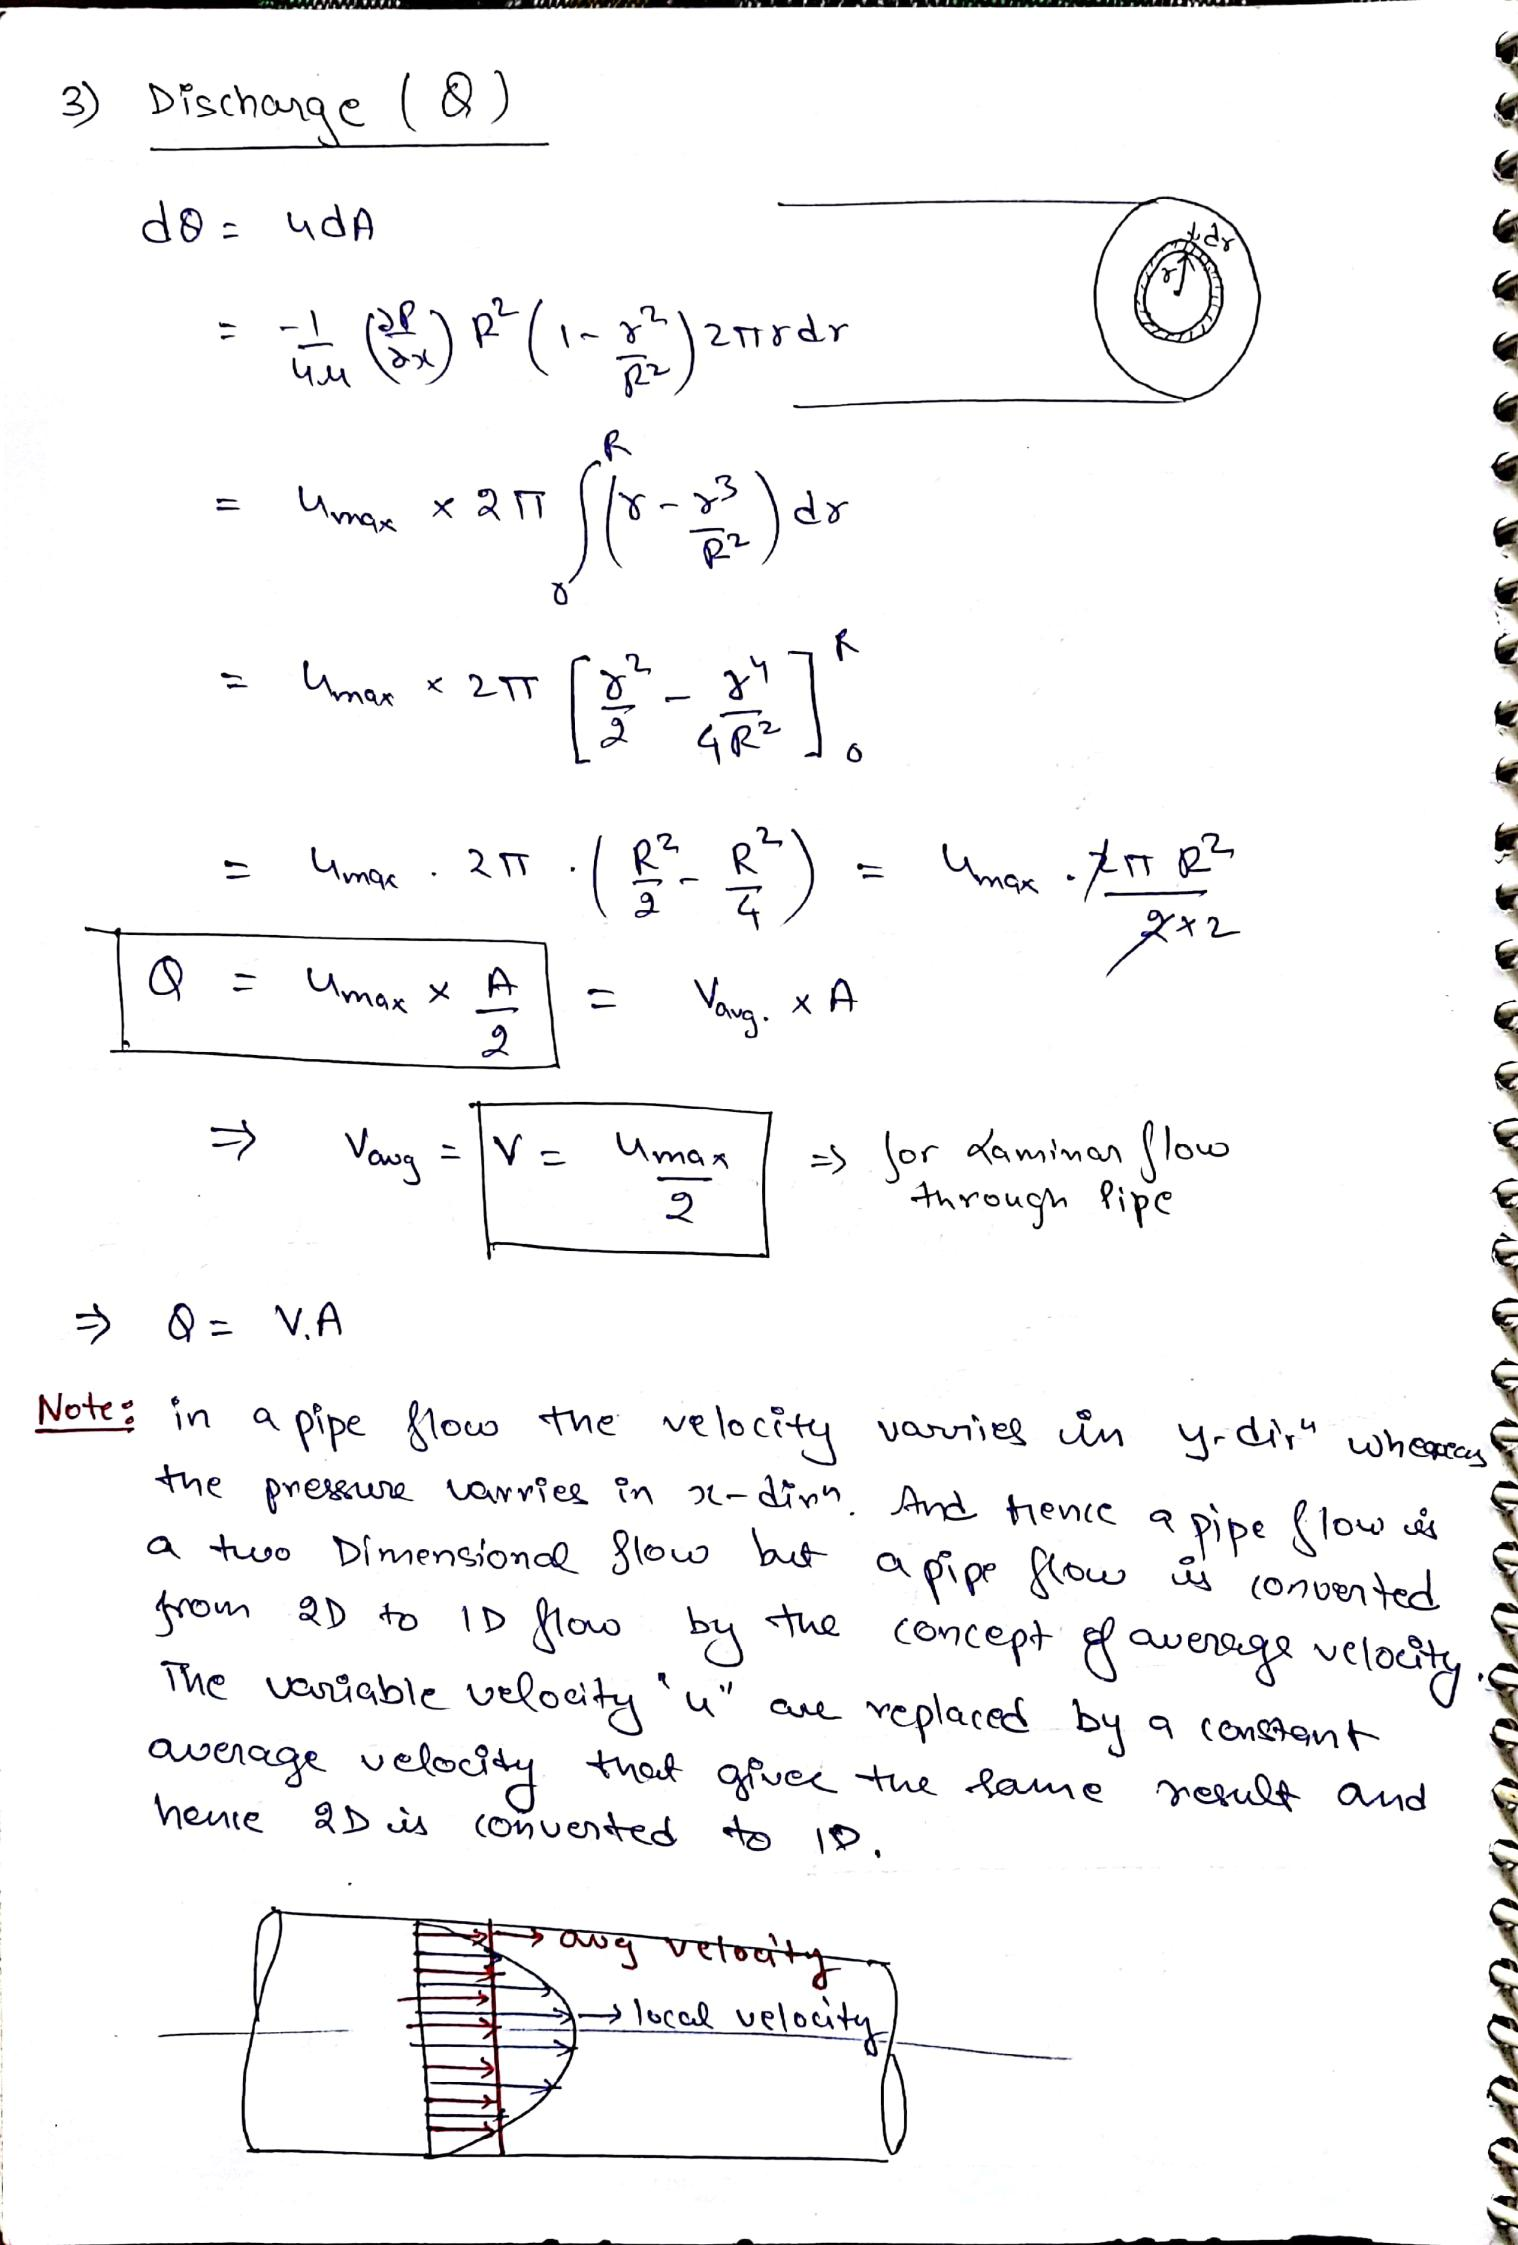 3) Discharge (Q)
dQ = udA
dr
r
= -1/4μ (∂P/∂x) R² (1 - r²/R²) 2πrdr
= Umax × 2π ∫₀ᴿ (r - r³/R²) dr
= Umax × 2π [r²/2 - r⁴/4R²]₀ᴿ
= Umax . 2π . (R²/2 - R²/4) = Umax . 2πR²/2×2
Q = Umax × A/2 = Vavg. × A
⇒ Vavg = V = Umax/2 ⇒ for Laminar flow
through Pipe
⇒ Q = V.A
Note: in a pipe flow the velocity varries in y-dirⁿ whereas
the pressure varries in x-dirn. And Hence a pipe flow is
a two Dimensional flow but a pipe flow is converted
from 2D to 1D flow by the concept of average velocity.
The variable velocity "u" are replaced by a constant
average velocity that gives the same result and
hence 2D is converted to 1D.
→ avg velocity
→ local velocity